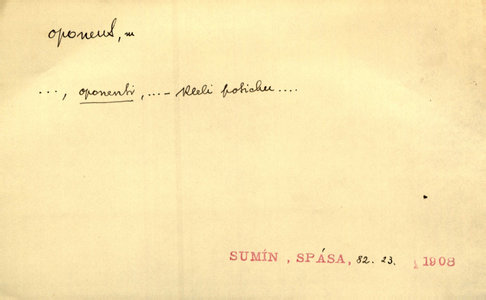 oponent, m
..., oponenti, ... - kleli potichu ....
SUMÍN , SPÁSA, 82. 23. 1908